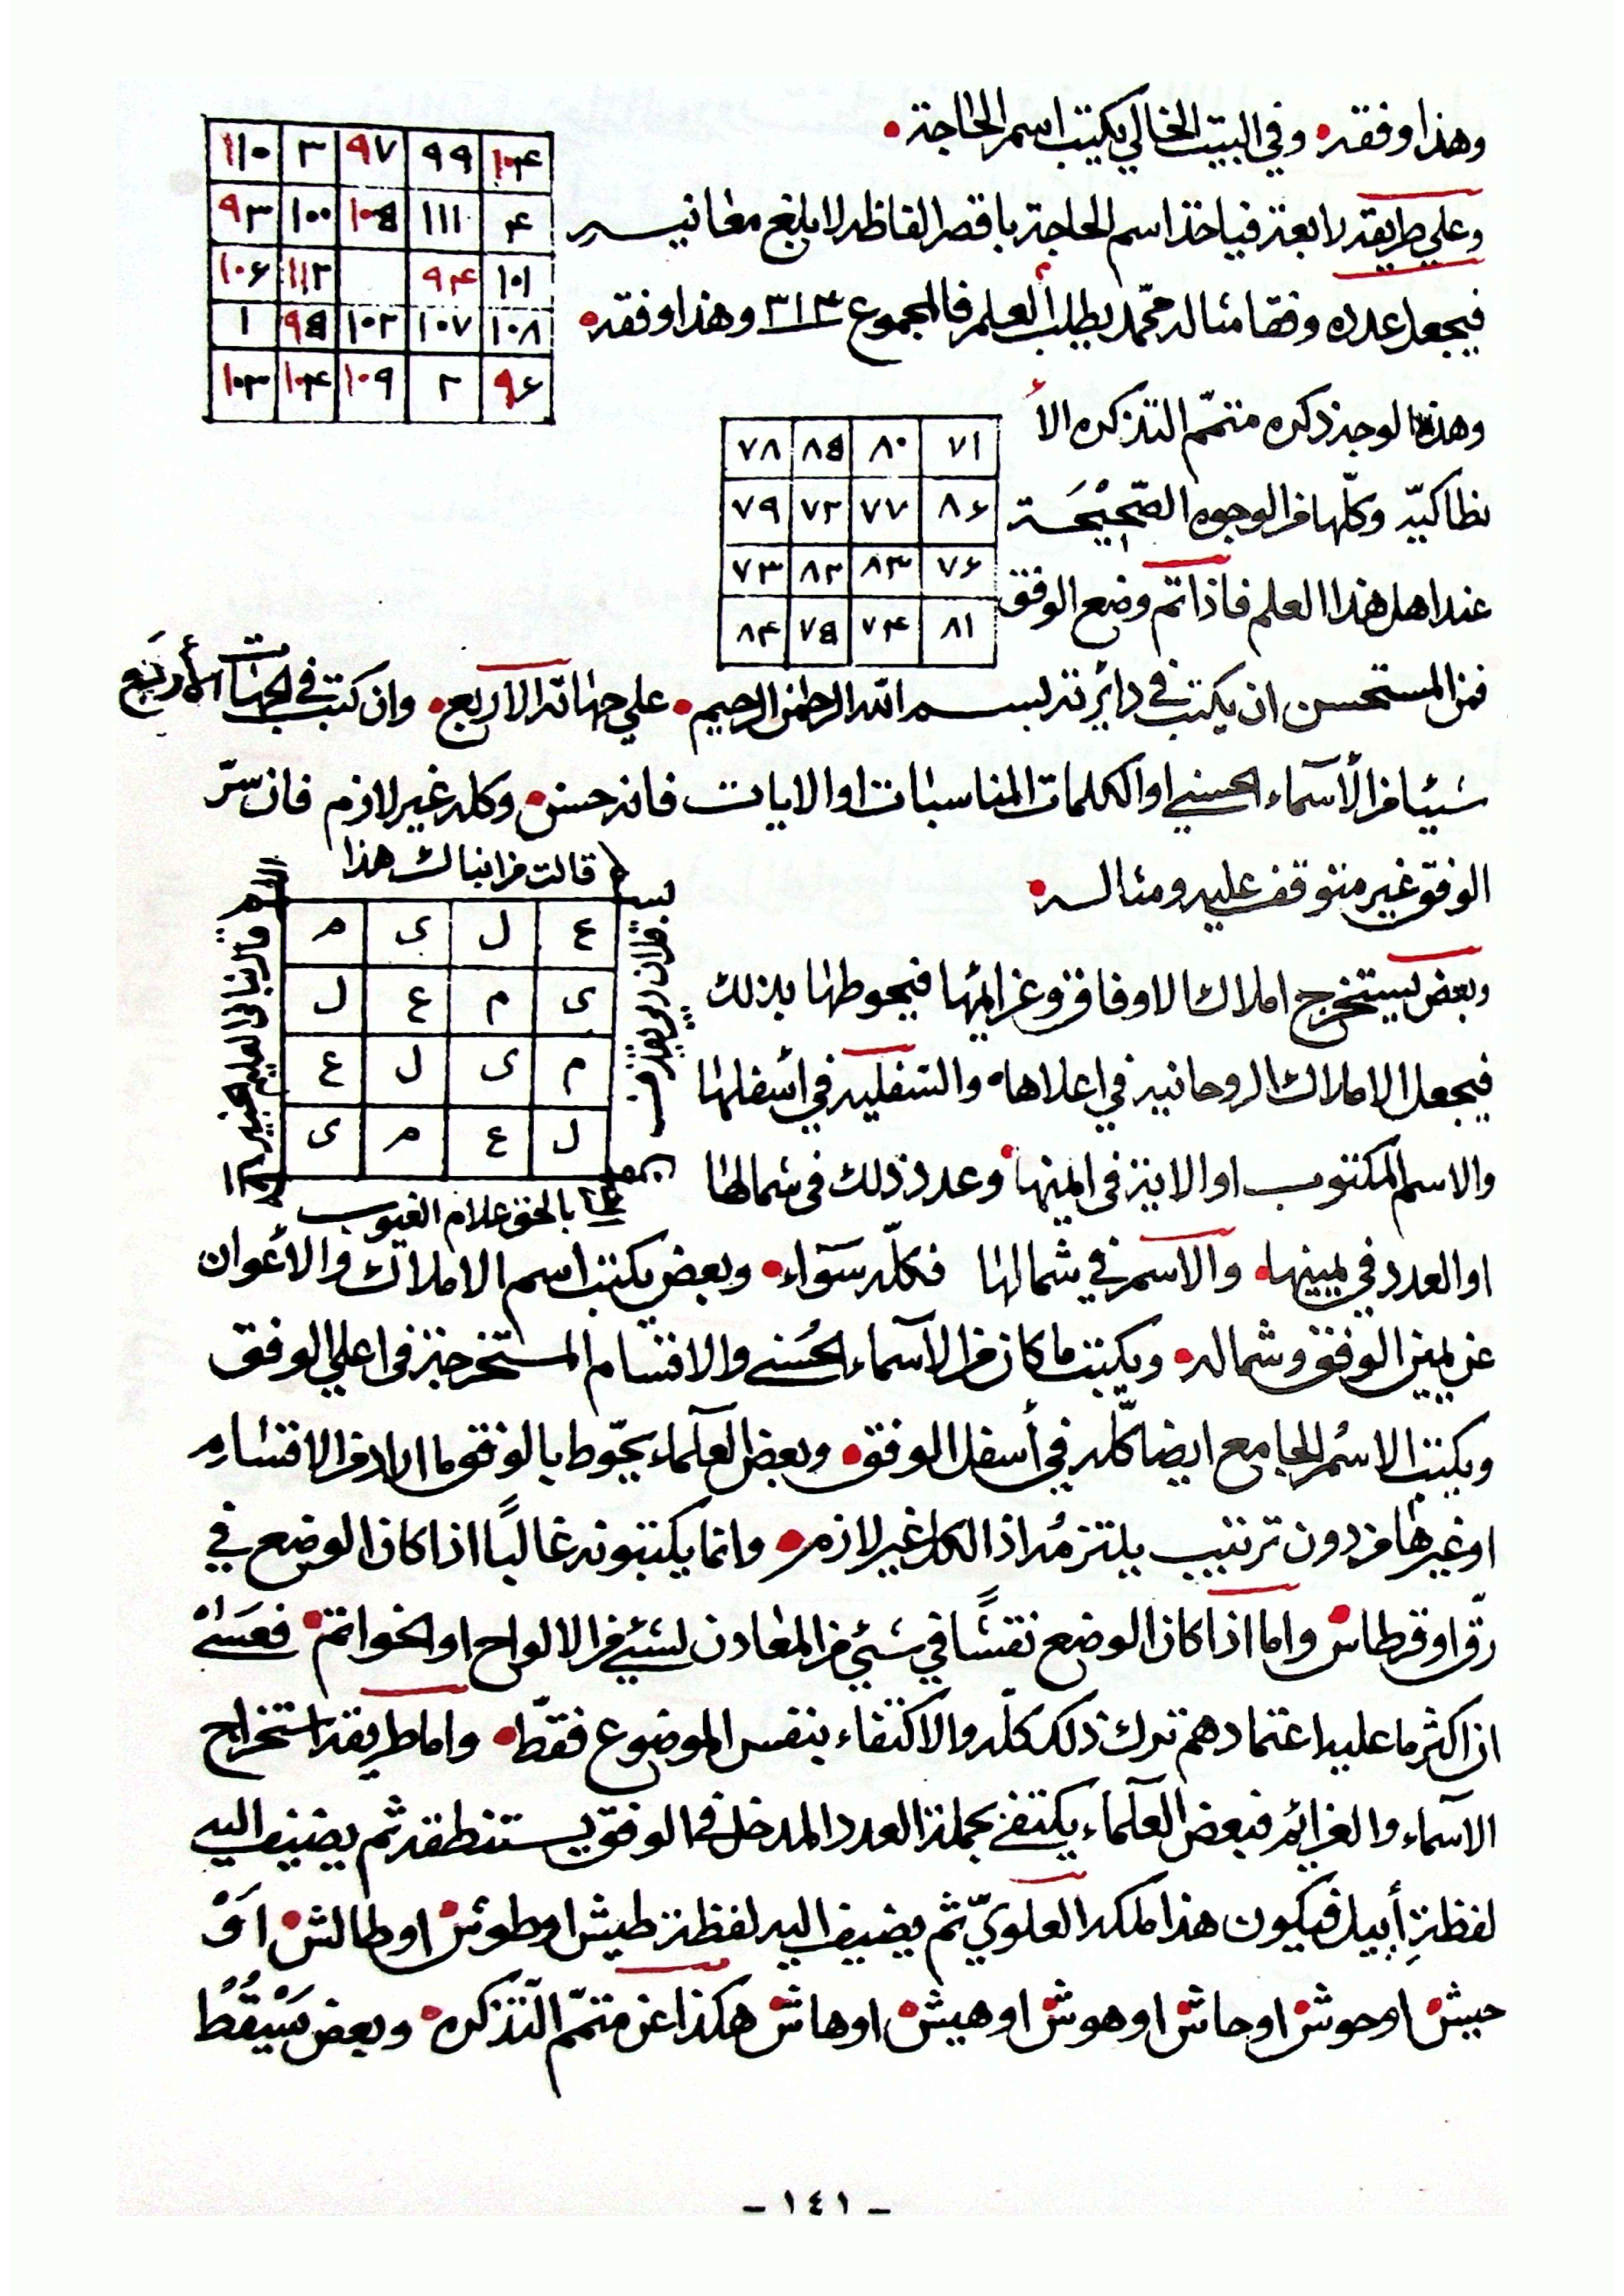 وهذا وفقه. وفي البيت الخالي يكتب اسم الحاجة.
١١٠ ٣ ٩٧ ٩٩ ١٠۴
٩٣ ١٠٠ ١٠۵ ١١١ ۴
١٠۶ ١١٢ ٩۴ ١٠١
١ ٩۵ ١٠٢ ١٠٧ ١٠٨
١٠٣ ١٠۴ ١٠٩ ٢ ٩۶
وعلي طريقة رابعة فياخذ اسم الحاجة باقصر الفاظه لابلغ معانيه
فيجعل عدده وفقا مثاله محمّد يطلب العلم فالمجموع ٣١۴ وهذا وفقه.
وهذه الوجه ذكره متمّم التذكره الأ
٧٨ ٨۵ ٨٠ ٧١
٧٩ ٧٢ ٧٧ ٨۶
٧٣ ٨٢ ٨٣ ٧۶
٨۴ ٧۵ ٧۴ ٨١
نطاكيّه وكلّها من الوجوه الصّحِيْحَة
عند اهل هذا العلم فاذا تم وضع الوفق
فمن المستحسن ان يكتب في دائرته بسم الله الرحمن الرحيم. علي جهاته الاربع. وان كتب في الجهات الأربَع
شيئا من الأسمآء الحسني او الكلمات المناسبات او الايات فانه حسن. وكله غير لازم فان سرّ
الوفق غير متوقف عليه ومثاله.
قالت من انباك هذا
ع ل ى م
ى م ع ل
م ى ل ع
ل ع م ى
قال نباني العليم الخبير
قل ان ربي يقذف
بالحق علام الغيوب
وبعض يستخرج املاك الاوفاق وعزائمها فيحوطها بذلك
فيجعل الاملاك الروحانيه في اعلاها. والسفليه في أسفلها
والاسم المكتوب او الاية في ايمنها. وعدد ذلك في شمالها
او العدد في يمينها. والاسم في شمالها فكلّه سَوَاء. وبعض يكتب اسم الاملاك والأعوان
عن يمين الوفق وشماله. ويكتب ما كان من الاسمآء الحُسني والاقسام المستخرجة في اعلي الوفق
ويكتب الاسْم الجامع ايضا كلّه في أسفل الوفق. وبعض العلمآء يحوّط بالوفق ما اراد من الاقسام
او غيرها من دون ترتيب يلتزمُ اذ الكل غير لازم. وانما يكتبونه غالبًا اذا كان الوضع في
رقّ او قرطاس. واما اذا كان الوضع نقشًا في شيئ من المعادن لشئي من الالواح او الخواتم. فعَسٰي
ان اكثر ما عليه اعتمادهم ترك ذلك كلّه والاكتفاء بنفس الموضوع فقطّ. واما طريقة استخراج
الاسماء والعزائم فبعض العلمآء يكتفي بجملة العدد المدخل في الوفق يستنطقه ثم يضيف اليه
لفظةِ أييل فيكون هذا ملكه العلويّ ثم يضيف اليه لفظة طيش او طوش. او طالش. اَوْ
حيش. او حوش. او حاش. او هوش. او هيش. او هاش. هكذا عن متمّم التّذكره. وبعض يَسْقُطُ
- ١٤١ -